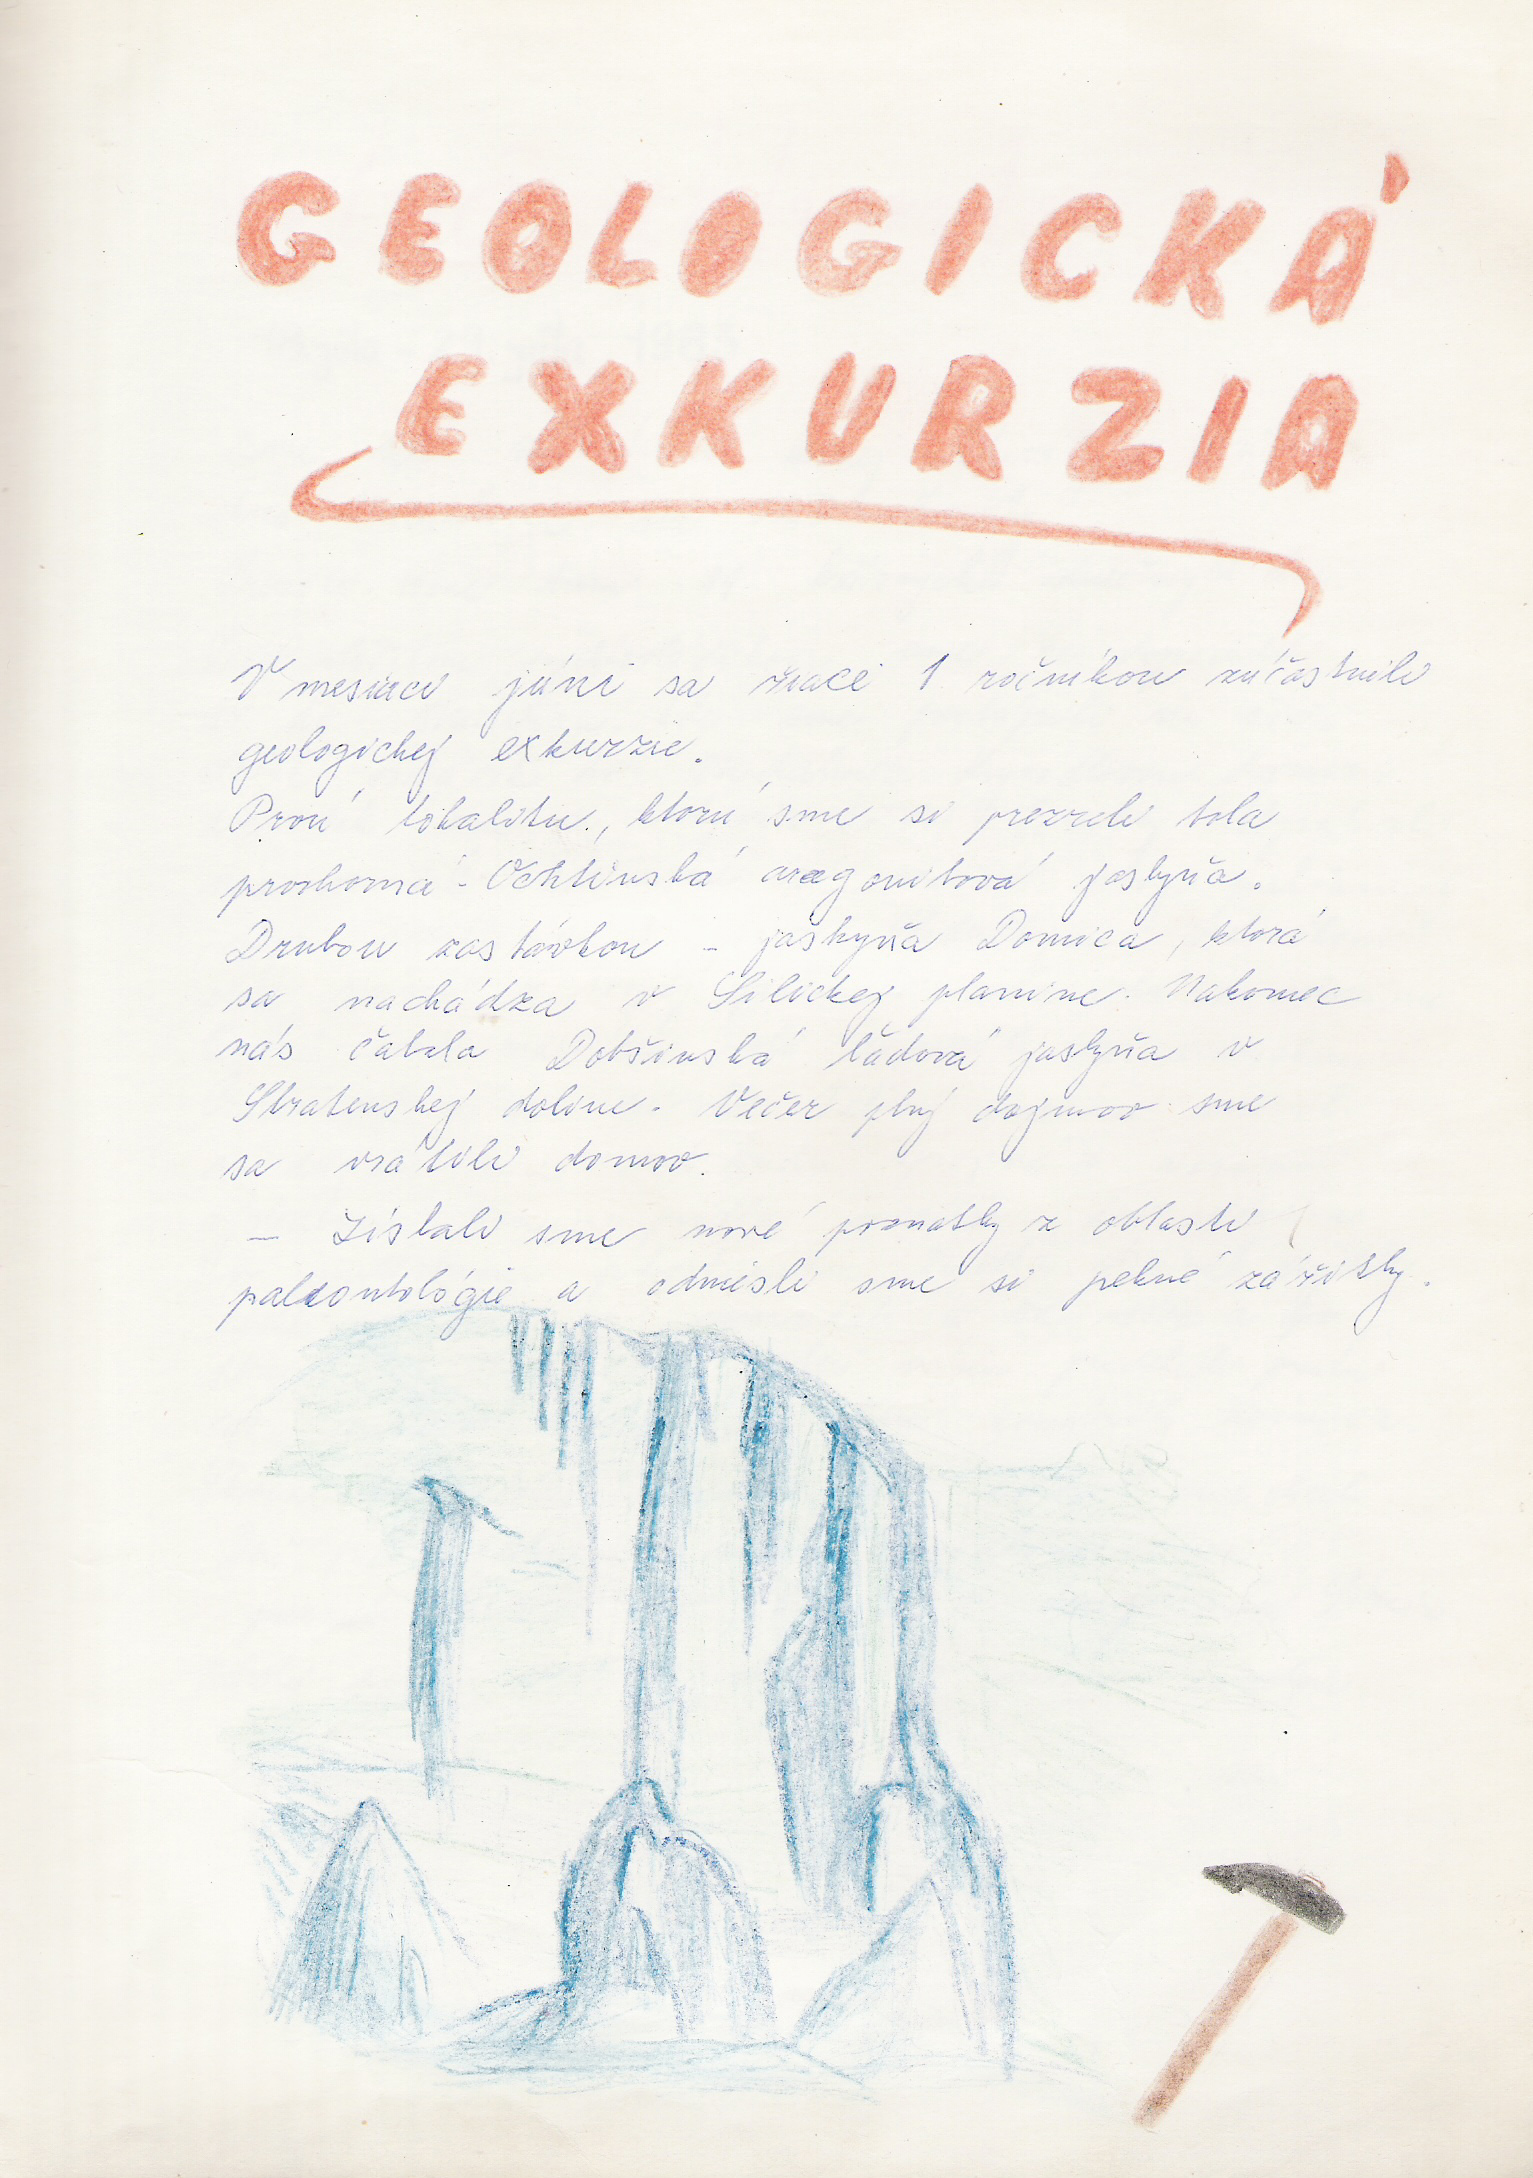 GEOLOGICKÁ
EXKURZIA
V mesiaci júni sa žiaci 1 ročníkov zúčastnili
geologickej exkurzie.
Prvú lokalitu, ktorú sme si prezreli bola
prekrásna - Ochtinská aragonitová jaskyňa.
Druhou zastávkou - jaskyňa Domica, ktorá
sa nachádza v Silickej planine. Nakoniec
nás čakala Dobšinská ľadová jaskyňa v
Stratenskej doline. Večer plný dojmov sme
sa vrátili domov.
- Získali sme nové poznatky z oblasti
paleontológie a odniesli sme si pekné zážitky.